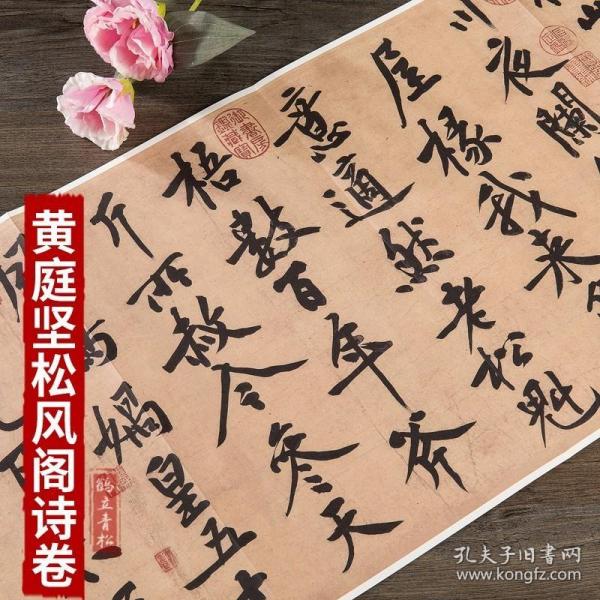 川夜闌
屋椽我来
意適然老松魁
梧數百年斧
斤所赦今參天
媧皇五十
黄庭坚松风阁诗卷
鹤立青松
孔夫子旧书网
www.kongfz.com